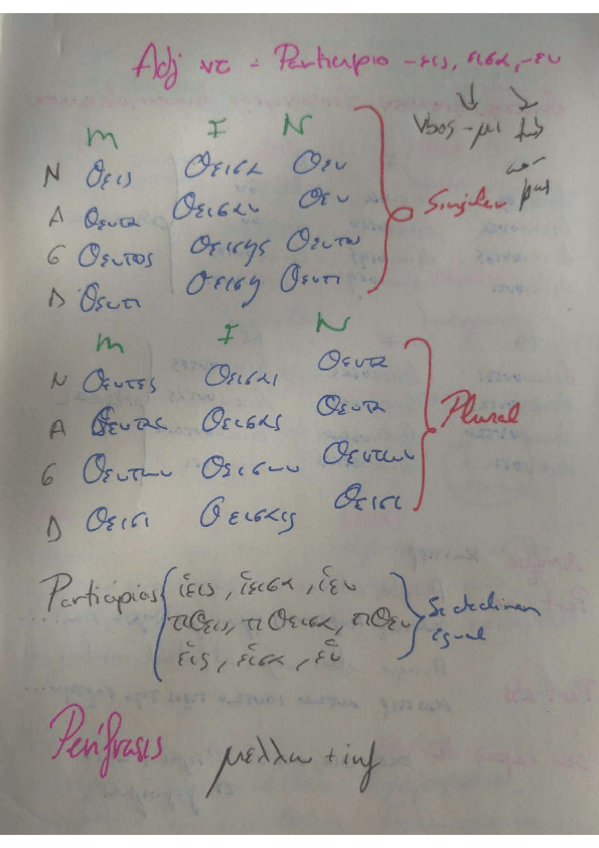 Adj ντ = Participio -εις, εισα, -εν
Vbos -μι
M F N
N θεις θεισα θεν
A θεντα θεισαν θεν
G θεντος θεισης θεντος
D θεντι θειση θεντι
Singular
M F N
N θεντες θεισαι θεντα
A θεντας θεισας θεντα
G θεντων θεισων θεντων
D θεισι θεισαις θεισι
Plural
Participios ἱεις, ἱεισα, ἱεν
τιθεις, τιθεισα, τιθεν
εἱς, εἱσα, ἑν
Se declinan igual
Perífrasis μελλω + inf